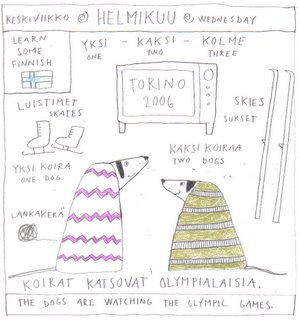 KESKIVIIKKO @ HELMIKUU @ WEDNESDAY
LEARN
SOME
FINNISH
YKSI - KAKSI - KOLME
ONE TWO THREE
TORINO
2006
LUISTIMET
SKATES
SKIES
SUKSET
YKSI KOIRA
ONE DOG
KAKSI KOIRAA
TWO DOGS
LANKAKERÄ
KOIRAT KATSOVAT OLYMPIALAISIA.
THE DOGS ARE WATCHING THE OLYMPIC GAMES.